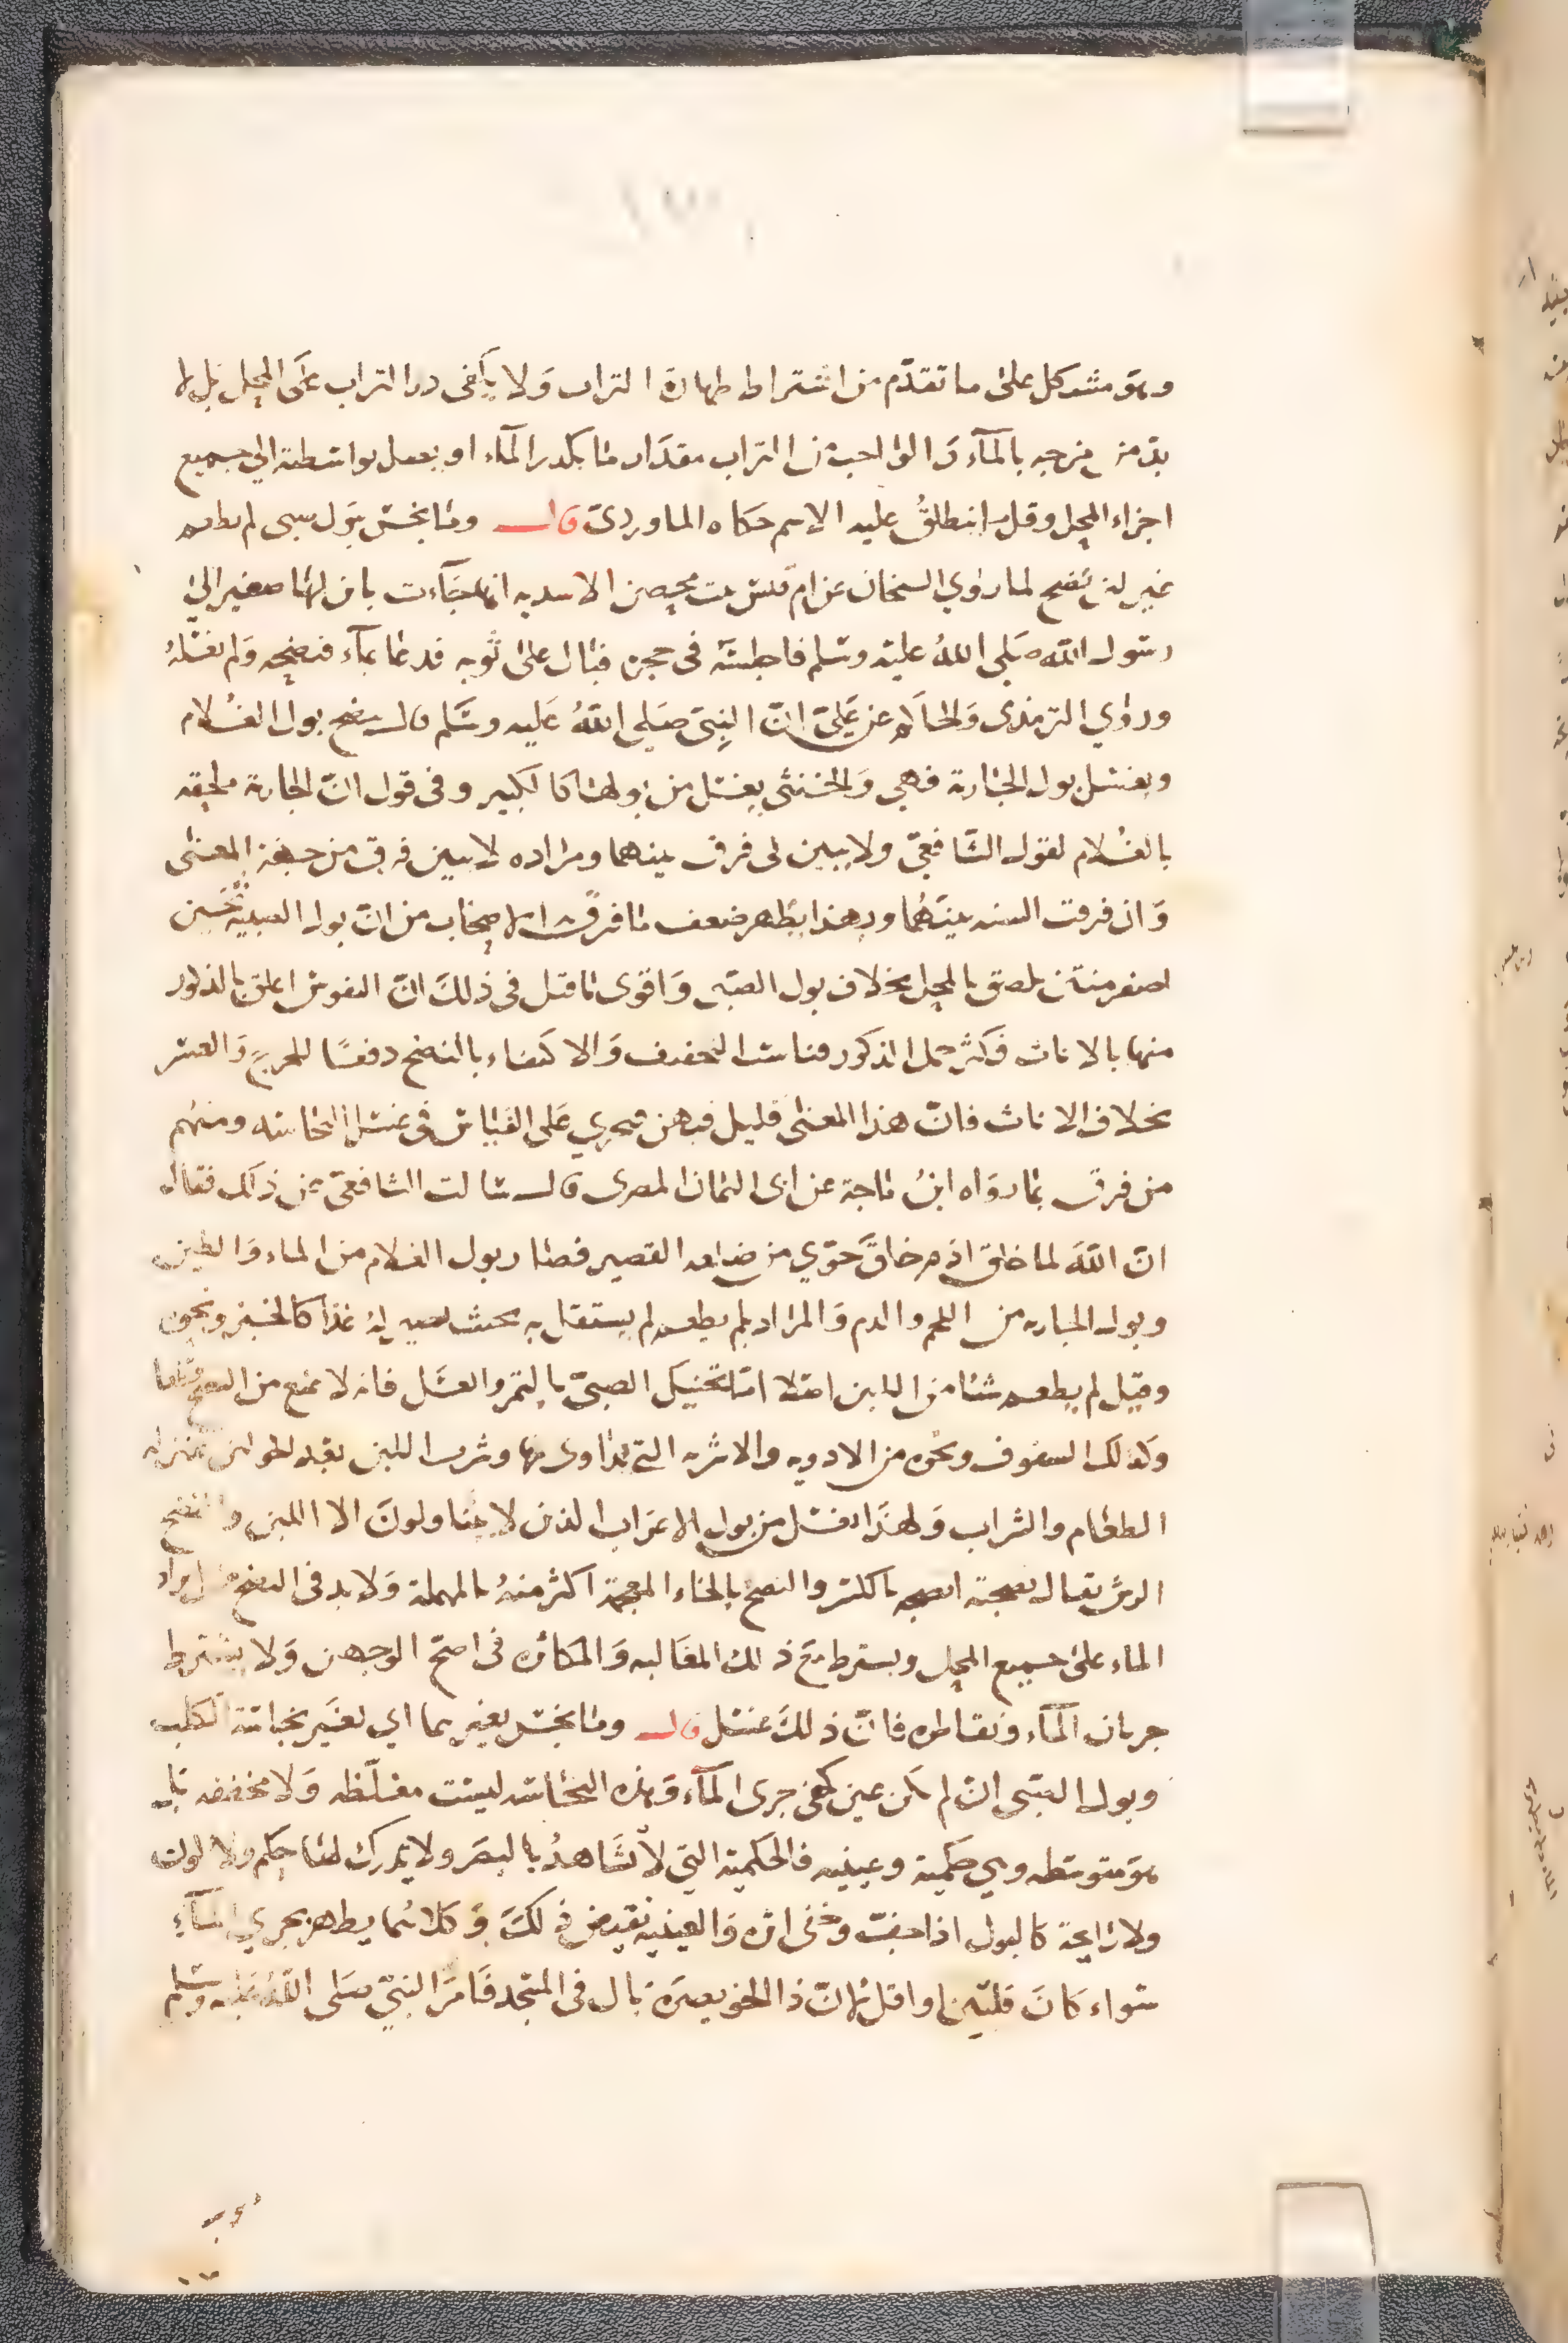 وهو مشكل على ما تقدم من اشتراط طهارة التراب ولا يكفى ذر التراب على المحل بل لا
بد من مزجه بالمآء والواجب من التراب مقدار ما يكدر المآء او يصل بواسطته الى جميع
اجزاء المحل وقيل ما ينطلق عليه الاسم حكاه الماوردى قال وما نجس ببول صبى لم يطعم
غير لبن نضح لما روي الشيخان عن ام قيس بنت محصن الاسديه انها جآءت بابن لها صغير الى
رسول الله صلى الله عليه وسلم فاجلسه فى حجره فبال على ثوبه فدعا بمآء فنضحه ولم يغسله
وروي الترمذى والحاكم عن على ان النبى صلى الله عليه وسلم قال ينضح بول الغلام
ويغسل بول الجارية فهى والخنثى يغسل من بولهما كالكبير وفى قول ان الجارية ملحقه
بالغلام لقول الشافعى ولا يبين لى فرق بينهما ومراده لا يبين فرق من جهة المعنى
وان فرقت السنه بينهما وبهذا يظهر ضعف ما فرق به الاصحاب من ان بول الصبية ثخين
اصفر منتن يلصق بالمحل بخلاف بول الصبى واقوى ما قيل فى ذلك ان النفوس اعلق بالذكور
منها بالاناث فكثر حمل الذكور فناسب التخفيف والاكتفاء بالنضح دفعا للحرج والعسر
بخلاف الاناث فان هذا المعنى قليل فيهن فيجري على القياس فى غسل النجاسه ومنهم
من فرق بما رواه ابن ماجة عن ابى اليمان المصرى قال سالت الشافعى عن ذلك فقال
ان الله لما خلق ادم خلق حوي من ضلعه القصير فصار بول الغلام من الماء والطين
وبول الجاريه من اللحم والدم والمراد بلم يطعم لم يستقل به بحيث يصير له غذا كالخبز ونحوه
وقيل لم يطعم شئا من اللبن اصلا اما تحنيك الصبى بالتمر والعسل فانه لا يمنع من النضح قطعا
وكذلك السفوف ونحوه من الادويه والاشربه التى يداوى بها وشرب اللبن بعد الحولين بمنزله
الطعام والشراب ولهذا يغسل من بول الاعراب الذين لا يتناولون الا اللبن والنضح
الرش يقال نضحته انضحه بالكسر والنضخ بالخاء المعجمة اكثر منه بالمهملة ولا بد فى النضح من ايراد
الماء على جميع المحل ويشترط مع ذلك المغالبه والمكاثره فى اصح الوجهين ولا يشترط
جريان المآء وتقاطره فان ذلك غسل قال وما نجس بغيرهما اي بغير نجاسة الكلب
وبول الصبى ان لم يكن عين كفى جرى المآء وهذه النجاسه ليست مغلظه ولا مخففه بل
هو متوسطه وهي حكمية وعينيه فالحكمية التى لا تشاهد بالبصر ولا يدرك لها طعم ولا لون
ولا رايحة كالبول اذا جف وخفى اثره والعينيه نقيض ذلك وكلاهما يطهر بجري المآء
سواء كان قلتين او اقل لان ذا الخويصره بال فى المسجد فامر النبي صلى الله عليه وسلم